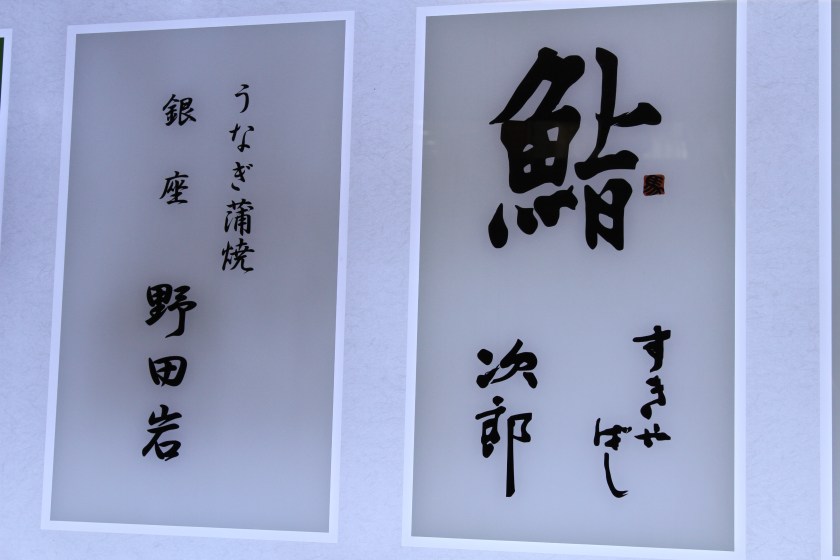 うなぎ蒲焼
銀座 野田岩
鮨
すきやばし
次郎